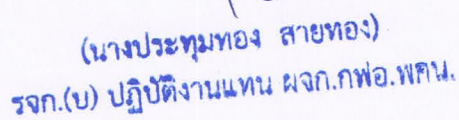 (นางประทุมทอง สายทอง)
รจก.(บ) ปฏิบัติงานแทน ผจก.กฟอ.พคน.